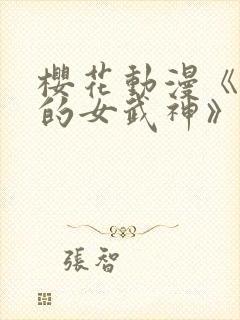 櫻花動漫《
的女武神》
張智